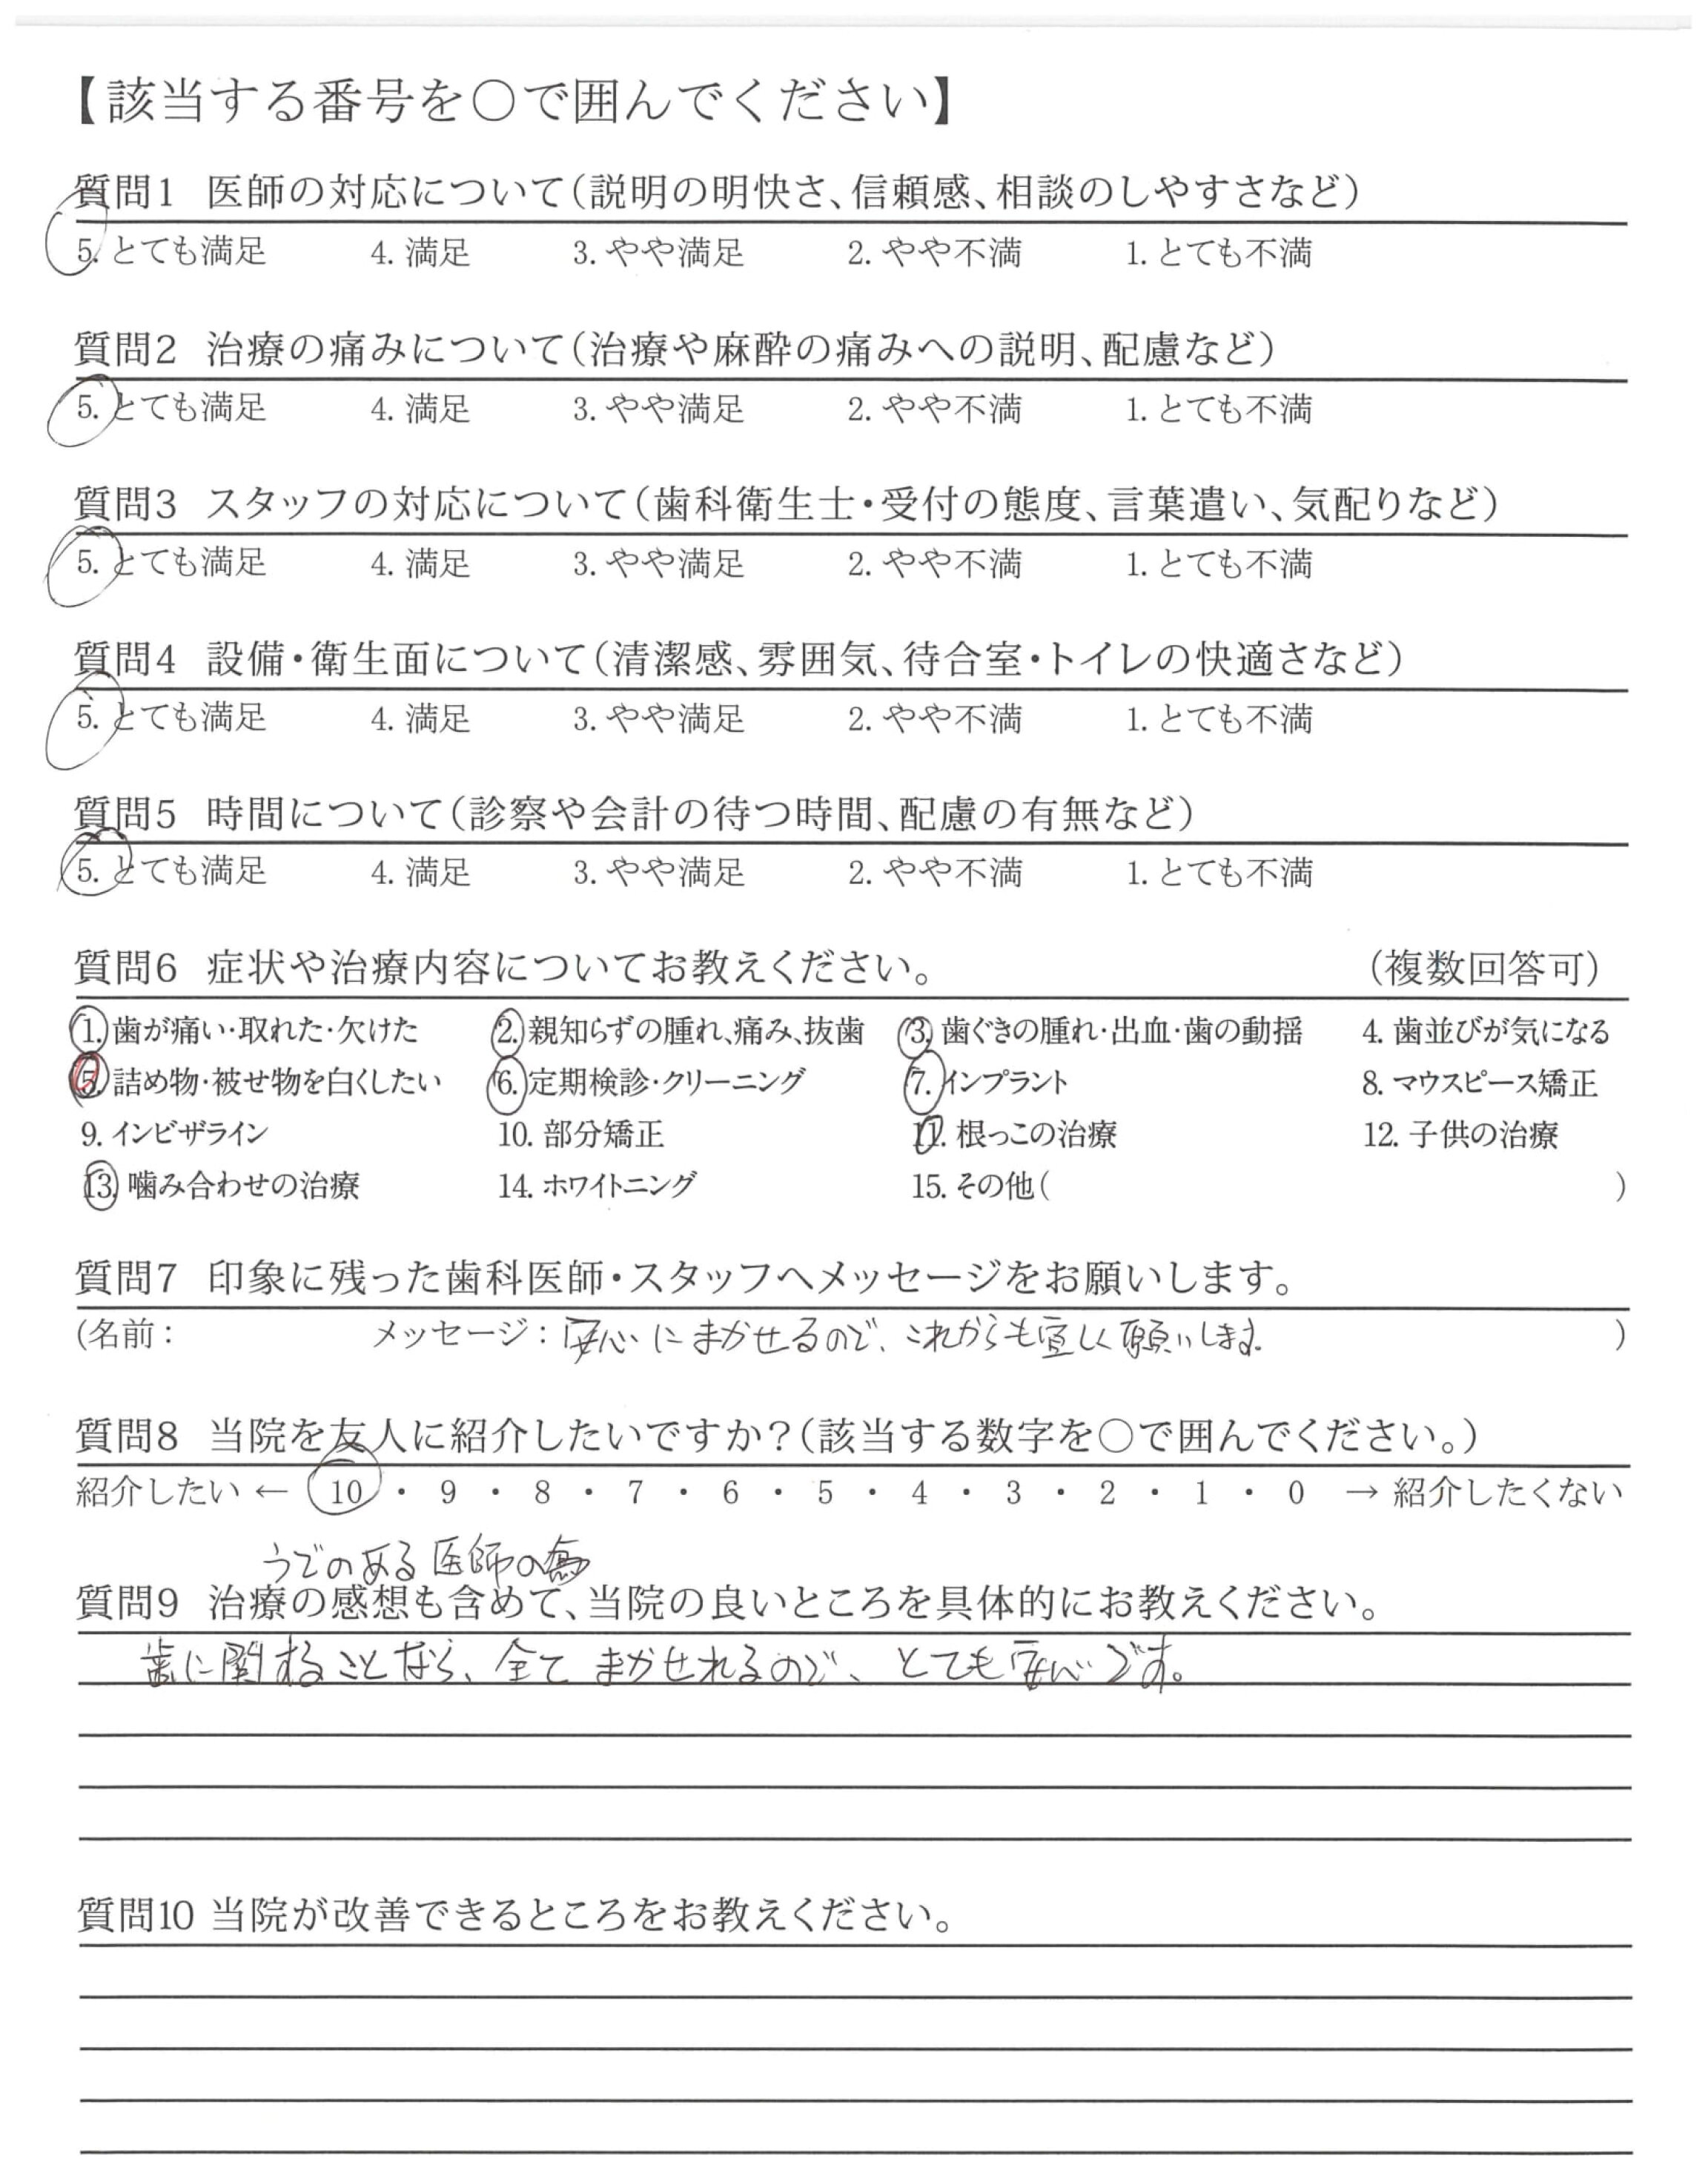 【該当する番号を○で囲んでください】
質問1 医師の対応について(説明の明快さ、信頼感、相談のしやすさなど)
5. とても満足 4. 満足 3. やや満足 2. やや不満 1. とても不満
質問2 治療の痛みについて(治療や麻酔の痛みへの説明、配慮など)
5. とても満足 4. 満足 3. やや満足 2. やや不満 1. とても不満
質問3 スタッフの対応について(歯科衛生士・受付の態度、言葉遣い、気配りなど)
5. とても満足 4. 満足 3. やや満足 2. やや不満 1. とても不満
質問4 設備・衛生面について(清潔感、雰囲気、待合室・トイレの快適さなど)
5. とても満足 4. 満足 3. やや満足 2. やや不満 1. とても不満
質問5 時間について(診察や会計の待つ時間、配慮の有無など)
5. とても満足 4. 満足 3. やや満足 2. やや不満 1. とても不満
質問6 症状や治療内容についてお教えください。 (複数回答可)
1. 歯が痛い・取れた・欠けた 2. 親知らずの腫れ、痛み、抜歯 3. 歯ぐきの腫れ・出血・歯の動揺 4. 歯並びが気になる
5. 詰め物・被せ物を白くしたい 6. 定期検診・クリーニング 7. インプラント 8. マウスピース矯正
9. インビザライン 10. 部分矯正 11. 根っこの治療 12. 子供の治療
13. 噛み合わせの治療 14. ホワイトニング 15. その他( )
質問7 印象に残った歯科医師・スタッフへメッセージをお願いします。
(名前: メッセージ:安心にまかせるので、これからも宜しく願いします。 )
質問8 当院を友人に紹介したいですか?(該当する数字を○で囲んでください。)
紹介したい ← 10 ・ 9 ・ 8 ・ 7 ・ 6 ・ 5 ・ 4 ・ 3 ・ 2 ・ 1 ・ 0 → 紹介したくない
うでのある医師の為
質問9 治療の感想も含めて、当院の良いところを具体的にお教えください。
歯に関することなら、全てまかせれるので、とても安心です。
質問10 当院が改善できるところをお教えください。